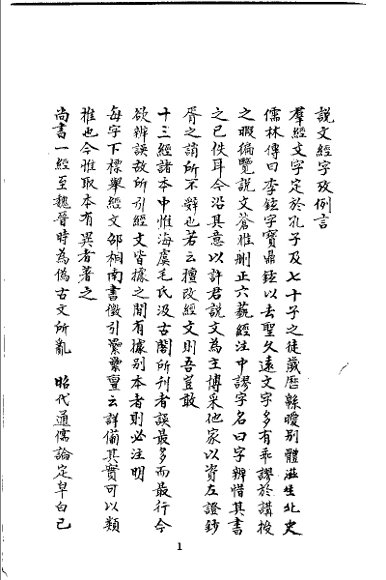 說文經字攷例言
羣經文字定於孔子及七十子之徒歲曆緜曖別體滋生北史
儒林傳曰李鉉字寶鼎鉉以去聖久遠文字多有乖謬於講授
之暇徧覽說文蒼雅刪正六藝經注中謬字名曰字辨惜其書
之已佚耳今沿其意以許君說文為主博采他家以資左證鈔
胥之誚所不辭也若云擅改經文則吾豈敢
十三經諸本中惟海虞毛氏汲古閣所刊者誤最多而最行今
欲辨誤故所引經文皆據之閒有據別本者則必注明
每字下標舉經文邵相南書徵引纍纍亹云詳備其實可以類
推也今惟取本有異者著之
尚書一經至魏晉時為偽古文所亂 昭代通儒論定阜白已
1